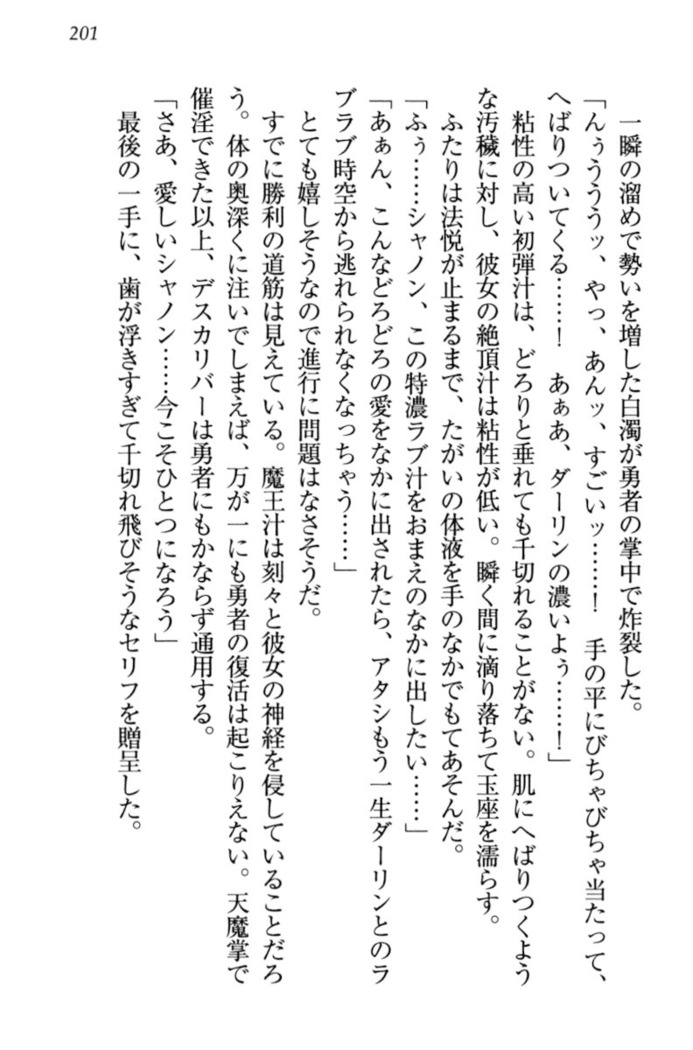 201
一瞬の溜めで勢いを増した白濁が勇者の掌中で炸裂した。
「んぅううッ、やっ、あんッ、すごいッ……！　手の平にびちゃびちゃ当たって、
へばりついてくる……！　あぁあ、ダーリンの濃いよぅ……！」
粘性の高い初弾汁は、どろりと垂れても千切れることがない。肌にへばりつくよう
な汚穢に対し、彼女の絶頂汁は粘性が低い。瞬く間に滴り落ちて玉座を濡らす。
ふたりは法悦が止まるまで、たがいの体液を手のなかでもてあそんだ。
「ふぅ……シャノン、この特濃ラブ汁をおまえのなかに出したい……」
「あぁん、こんなどろどろの愛をなかに出されたら、アタシもう一生ダーリンとのラ
ブラブ時空から逃れられなくなっちゃう……」
とても嬉しそうなので進行に問題はなさそうだ。
すでに勝利の道筋は見えている。魔王汁は刻々と彼女の神経を侵していることだろ
う。体の奥深くに注いでしまえば、万が一にも勇者の復活は起こりえない。天魔掌で
催淫できた以上、デスカリバーは勇者にもかならず通用する。
「さあ、愛しいシャノン……今こそひとつになろう」
最後の一手に、歯が浮きすぎて千切れ飛びそうなセリフを贈呈した。